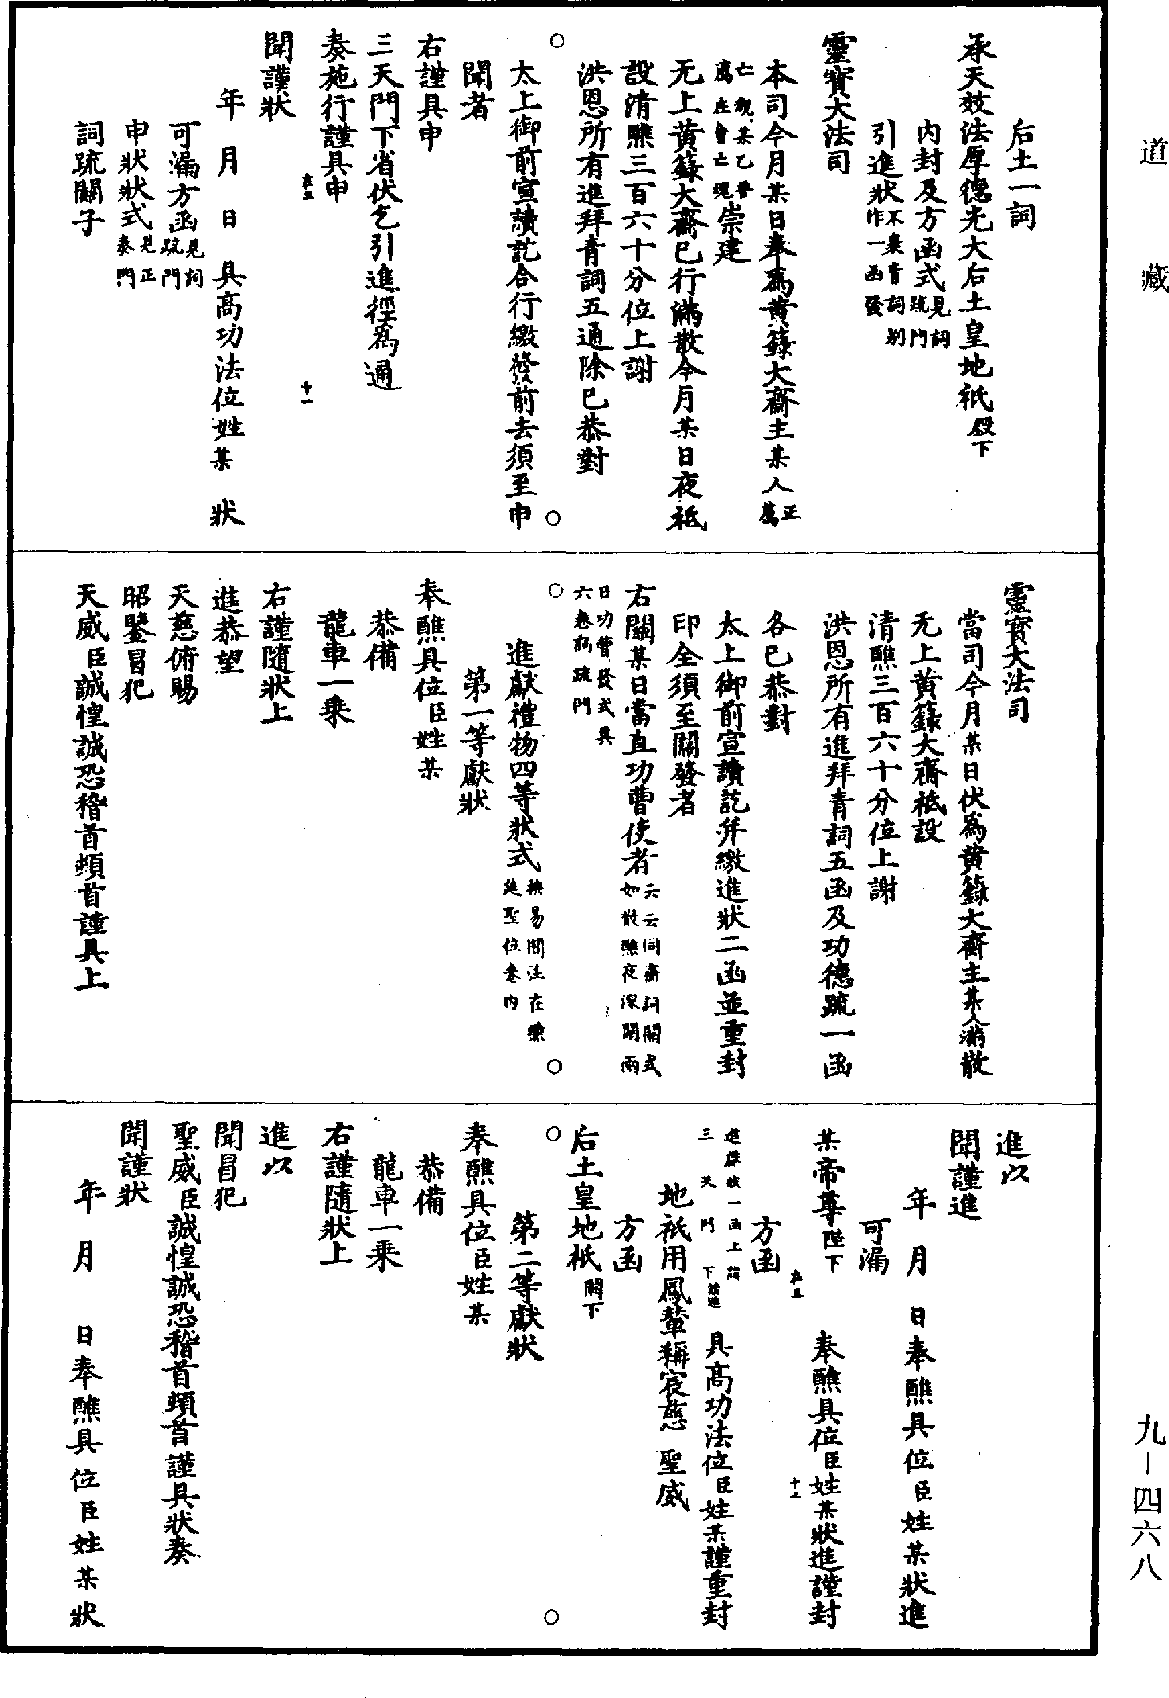 道藏
后土一詞
承天效法厚德光大后土皇地祇殿下
內封及方函式見詞疏門
引進狀不乘青詞別作一函發
靈寶大法司
本司今月某日奉為黃籙大齋主某人正薦
亡親某乙普薦座會亡魂崇建
无上黃籙大齋已行滿散今月某日夜祗
設清醮三百六十分位上謝
洪恩所有進拜青詞五通除已恭對
太上御前宣讀訖合行繳發前去須至申
聞者
右謹具申
三天門下省伏乞引進徑為通
奏施行謹具申
聞謹狀
年 月 日 具高功法位姓某 狀
可漏方函見詞疏門
申狀狀式見正奏門
詞疏關子
靈寶大法司
當司今月某日伏為黃籙大齋主某人滿散
无上黃籙大齋祗設
清醮三百六十分位上謝
洪恩所有進拜青詞五函及功德疏一函
各已恭對
太上御前宣讀訖并繳進狀二函並重封
印全須至關發者
右關某日當直功曹使者云云同齋詞關式如散醮夜深關兩
日功曹發式具六卷齋疏門
進獻禮物四等狀式換易關注在醮筵聖位卷內
第一等獻狀
奉醮具位臣姓某
恭備
龍車一乘
右謹隨狀上
進恭望
天慈俯賜
昭鑒冒犯
天威臣誠惶誠恐稽首頓首謹具上
進以
聞謹進
年 月 日奉醮具位臣姓某狀進
可漏
某帝尊陛下 奉醮具位臣姓某狀進謹封
方函
進獻狀一函上詣三天門下請進 具高功法位臣姓某謹重封
地祇用鳳輦稱宸慈 聖威
方函
后土皇地祇闕下
第二等獻狀
奉醮具位臣姓某
恭備
龍車一乘
右謹隨狀上
進以
聞冒犯
聖威臣誠惶誠恐稽首頓首謹具狀奏
聞謹狀
年 月 日奉醮具位臣姓某狀
九－四六八